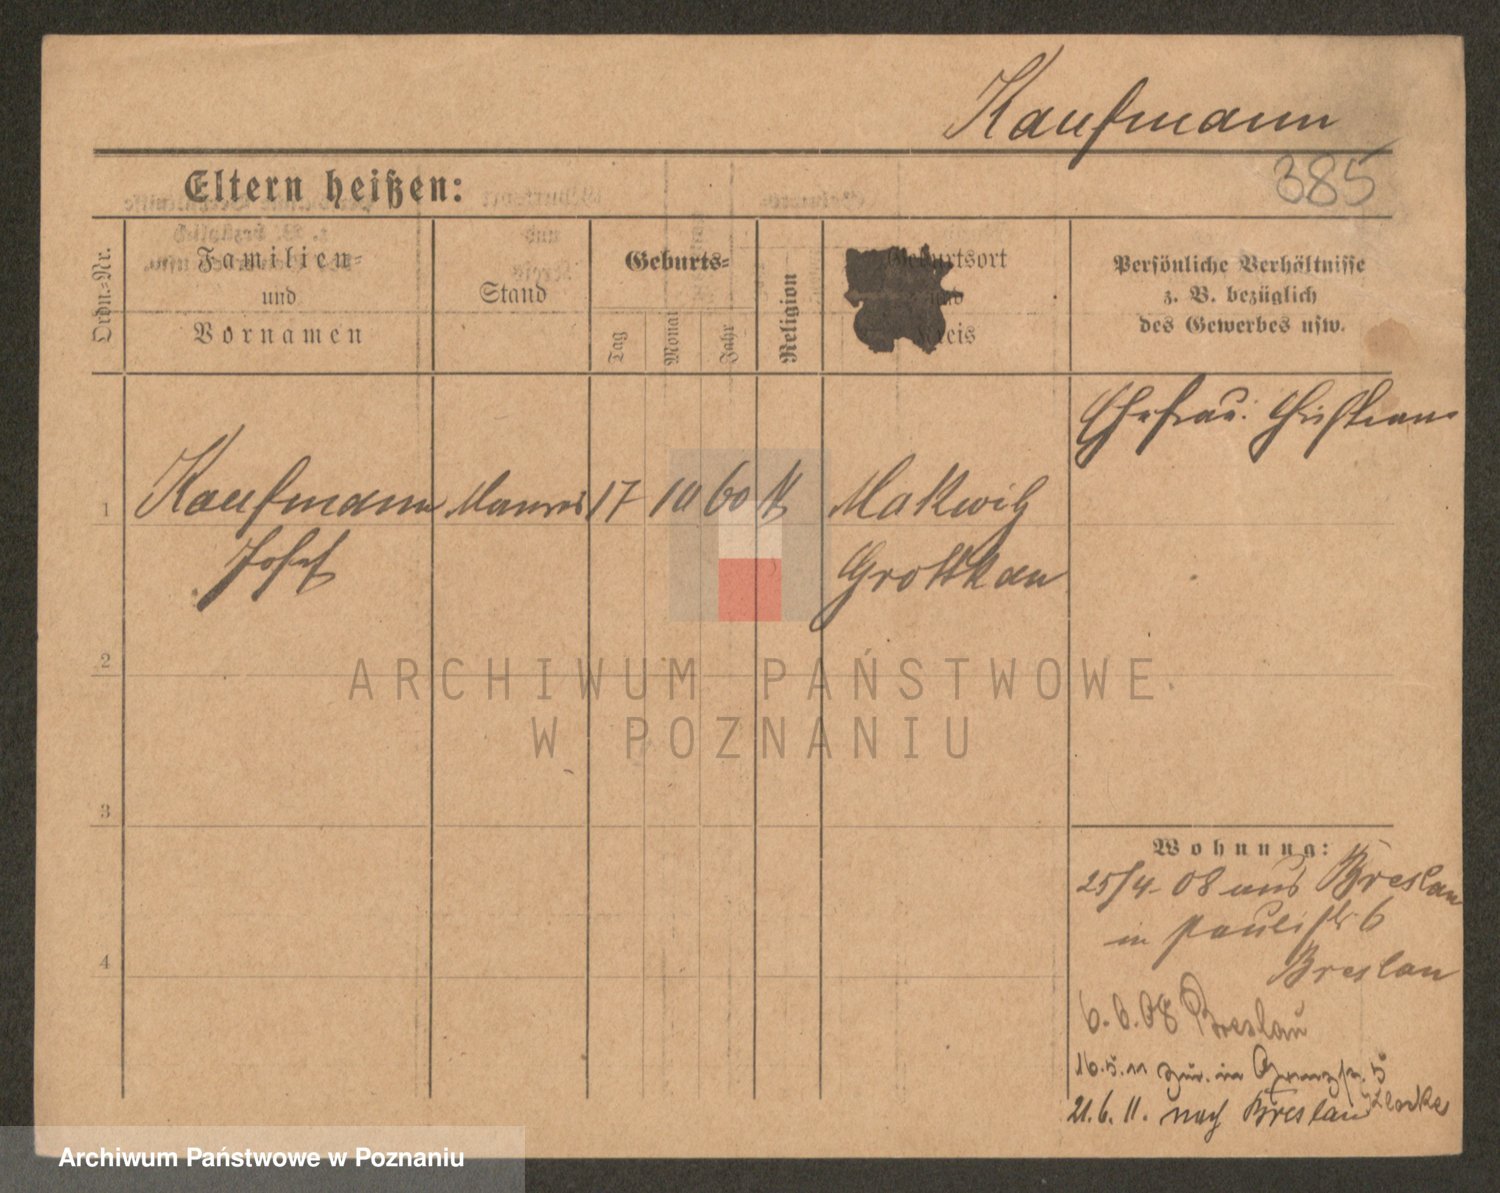 Kaufmann
385
Eltern heißen:
Ordn.-Nr.
Familien-
und
Vornamen
Stand
Geburts-
Tag
Monat
Jahr
Religion
Geburtsort
und
Kreis
Persönliche Verhältnisse
z. B. bezüglich
des Gewerbes usw.
Ehefrau:
1 Kaufmann 17 10 60 K
Josef Grottkau
2
3
4
ARCHIWUM PAŃSTWOWE
W POZNANIU
Wohnung:
25/4. 08 aus Breslau
in Paulistr 6
Breslau
6.6.08 Breslau
16.5.11 zur. in 5
21.6.11. nach Breslau
Archiwum Państwowe w Poznaniu